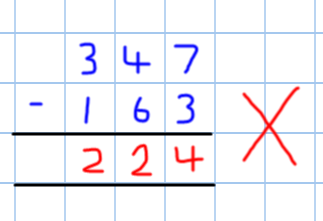 3 4 7
- 1 6 3
2 2 4